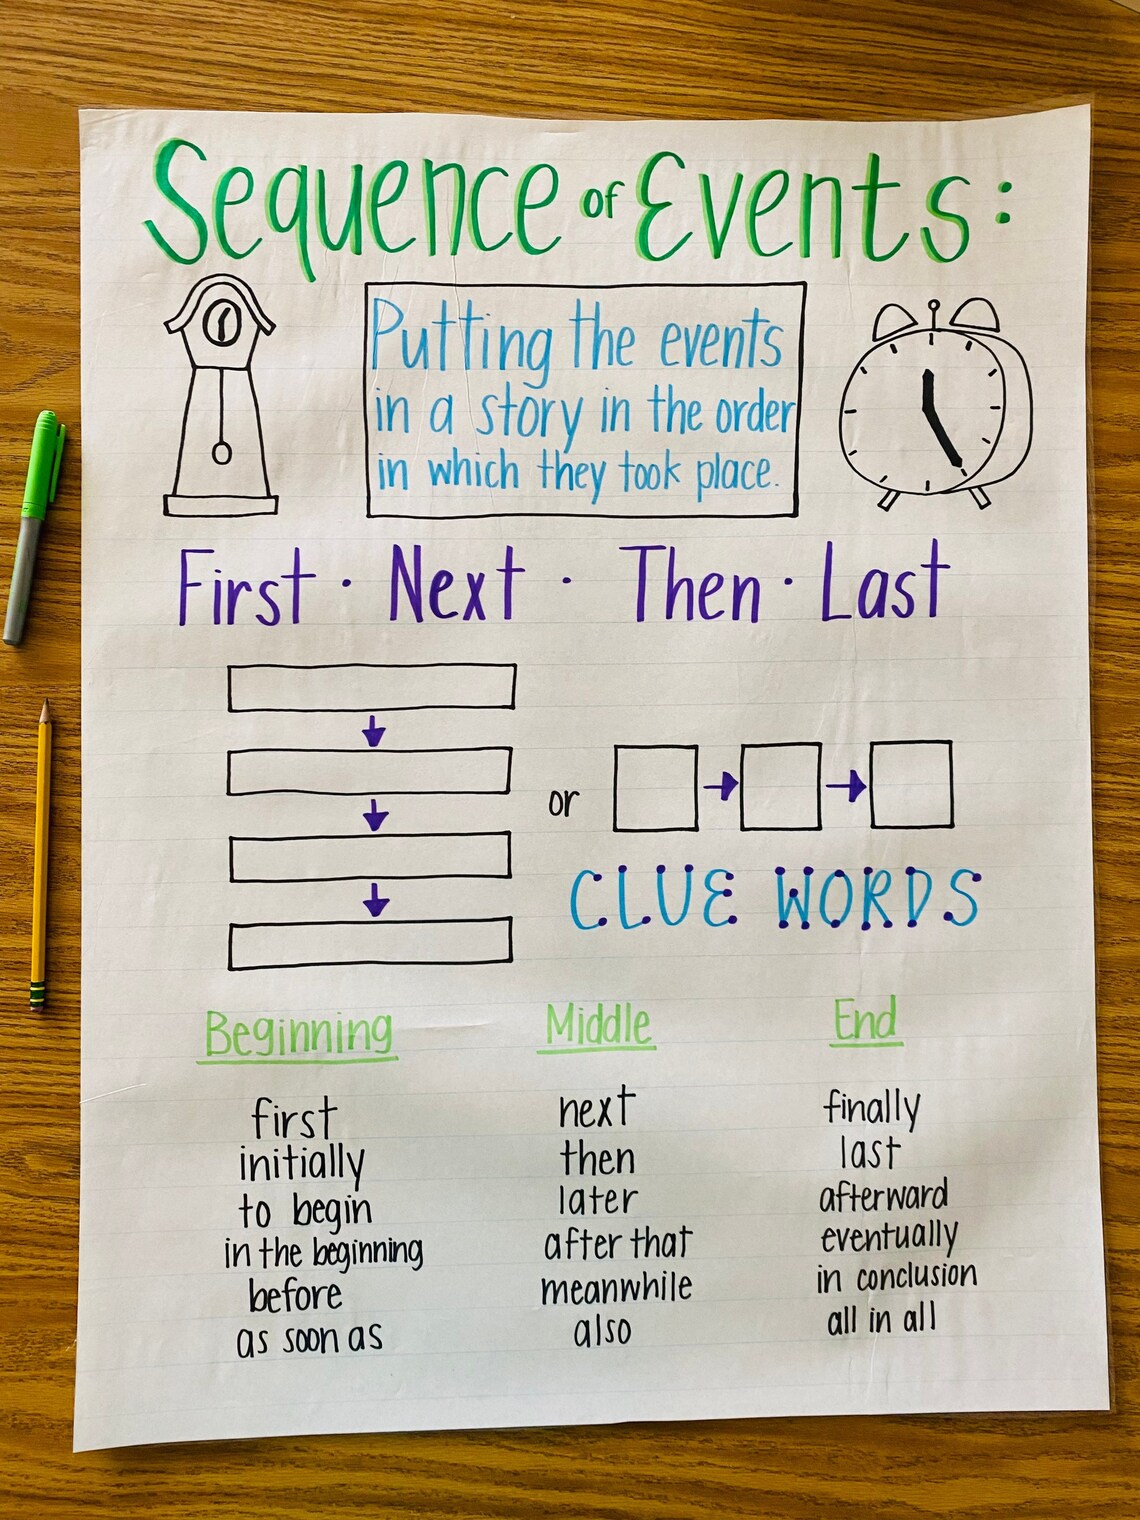 Sequence of Events:
Putting the events
in a story in the order
in which they took place.
First · Next · Then · Last
or
CLUE WORDS
Beginning
first
initially
to begin
in the beginning
before
as soon as
Middle
next
then
later
after that
meanwhile
also
End
finally
last
afterward
eventually
in conclusion
all in all